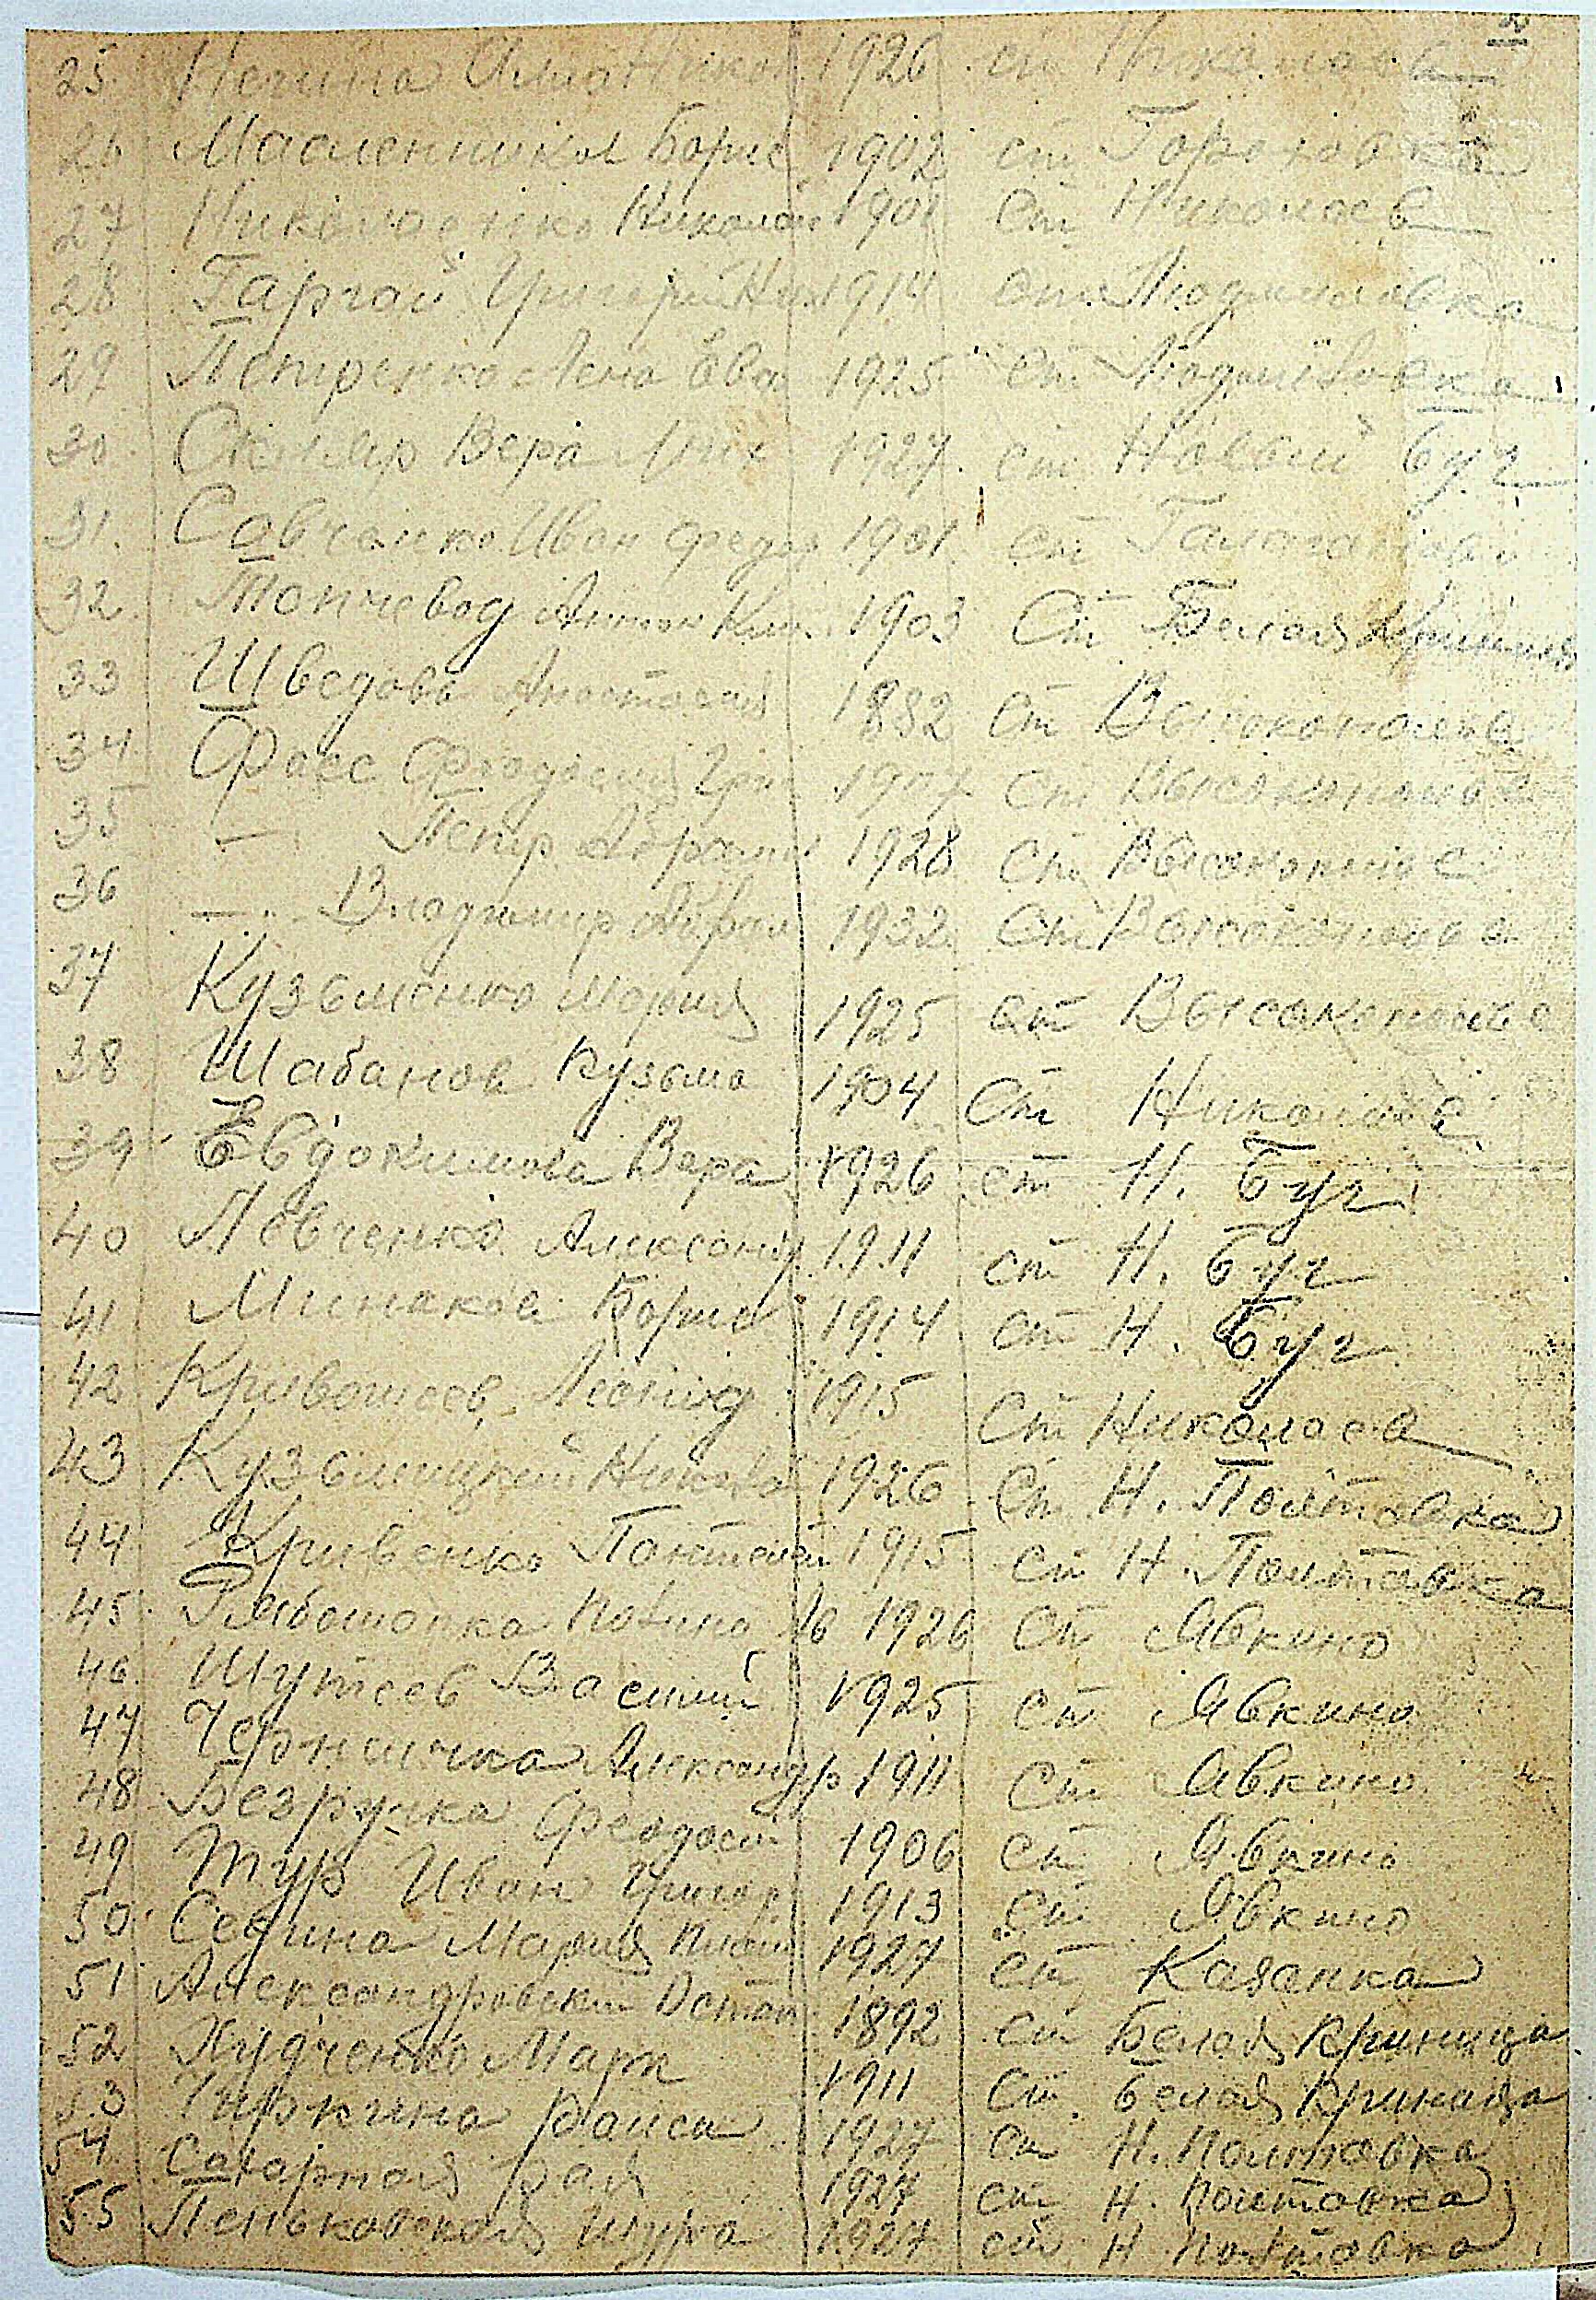 25 Нечина Алла Никол 1926 ст Николаев
26 Масленников Борис 1902 ст Гороховка
27 Николаенко Николай 1901 ст Николаев
28 Гаргай Григори Ни 1914 ст Людмиловка
29 Петренко Лена Ева 1925 ст Людмиловка
30 Скляр Вера 1927 ст Новый Буг
31. Савченко Иван Федор 1901 ст
32 Топчевод Антон Кли. 1903 Ст Белая Криница
33 Шведова Анастасия 1882 ст Высокополье
34 Фаес Феодосия Гри 1907 ст Высокополье
35 — Петр Абрам 1928 ст Высокополье
36 — Владимир Абрам 1932 ст Высокополье
37 Кузьменко Мария 1925 ст Высокополье
38 Шабанов Кузьма 1904 Ст Николаев
39 Евдокимова Вера 1926 ст Н. Буг
40 Левченко Александр 1911 ст Н. Буг
41 Минаков Борис 1914 ст Н. Буг
42 Кривошеев Леонид 1915 Ст Николаев
43 Кузьмицкий Никола 1926 Ст Н. Полтовка
44 Кривенко Пантелей 1915 ст Н. Полтавка
45 Рябошапка 1926 ст Явкино
46. Шутеев Василий 1925 ст Явкино
47 Черничка Александр 1911 Ст Явкино
48 Безручка Феодоси 1906 ст Явкино
49 Тур Иван Григор 1913 ст Явкино
50 Седина Мария 1927 ст Казанка
51 Александровский Остап 1892 ст Белая Криница
52 Худченко Марк 1911 Ст Белая Криница
53 Чиркина Раиса 1927 ст Н. Полтовка
54 Сахарная Рая 1927 ст Н. Полтовка
55 Пеньковская Шура 1927 ст Н Полтовка